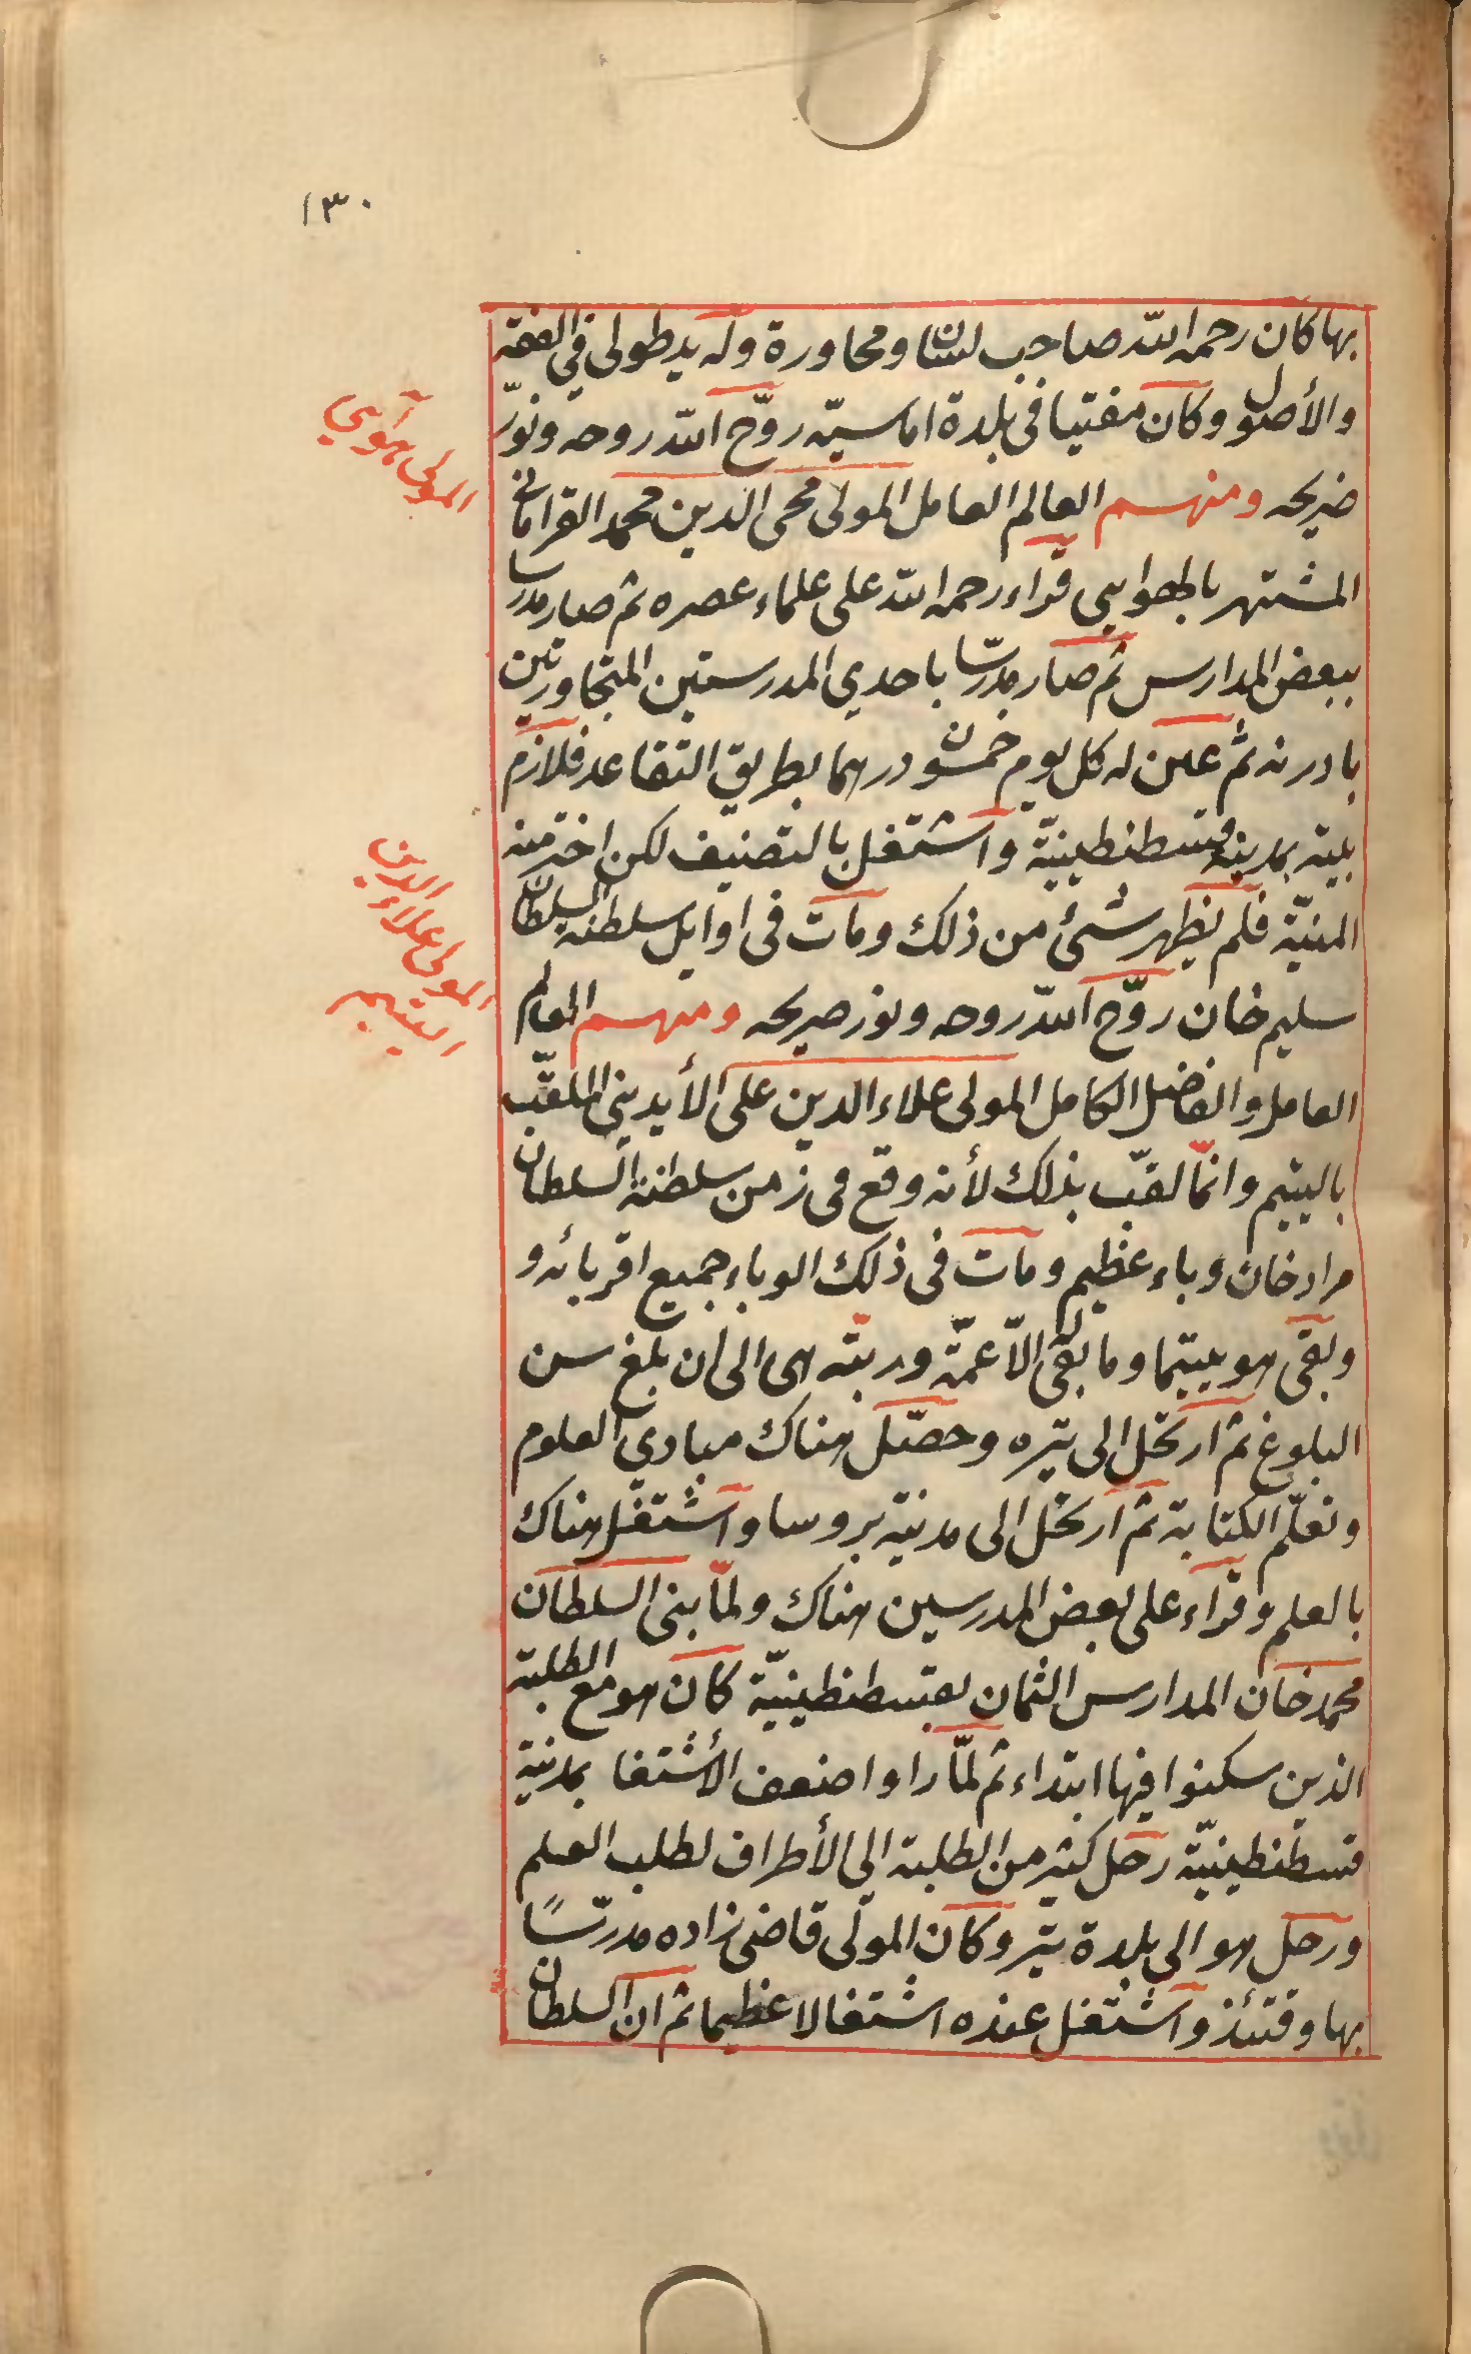 ١٣٠
بها كان رحمه الله صاحب لسان ومحاورة وله يد طولى في الفقه
والأصول وكان مفتيا فى بلدة اماسيّه روّح الله روحه ونوّر
ضريحه ومنهم العالم العامل المولى محى الدين محمد القرامانى
المشتهر با قراء رحمه الله على علماء عصره ثم صار مدرسا
ببعض المدارس ثم صار مدرّسا باحدي المدرستين المتجاورتين
بادرنه ثم عين له كل يوم خمسون درهما بطريق التقاعد فلازم
بيته بمدينة قسطنطينيّة واشتغل بالتصنيف لكن اخترمته
المنيّة فلم يظهر شئ من ذلك ومات فى اوايل سلطنه السلطان
سليم خان روّح الله روحه ونور ضريحه ومنهم العالم
العامل والفاضل الكامل المولى علاء الدين على الأيديني الملقّب
باليتيم وانما لقّب بذلك لأنه وقع فى زمن سلطنة السلطان
مراد خان وباء عظيم ومات فى ذلك الوباء جميع اقربائه و
وبقى هو يتيما وما بقى الّا عمّته وربته هى الى ان بلغ سن
البلوغ ثم ارتحل الى تيره وحصّل هناك مبادي العلوم
وتعلّم الكتابة ثم ارتحل الى مدينة بروسا واشتغل هناك
بالعلم وقراء على بعض المدرسين هناك ولمّا بنى السلطان
محمد خان المدارس الثمان بقسطنطينيّة كان هو مع الطلبة
الذين سكنوا فيها ابتداء ثم لمّا راوا ضعف الأشتغا بمدينة
قسطنطينيّة رحل كثير من الطلبة الى الأطراف لطلب العلم
ورحل هو الى بلدة تيره وكان المولى قاضى زاده مدرّسًا
بها وقتئذ واشتغل عنده اشتغالا عظيما ثم ان السلطان
المولى آهوي
المولى علاء الدين
اليتيم